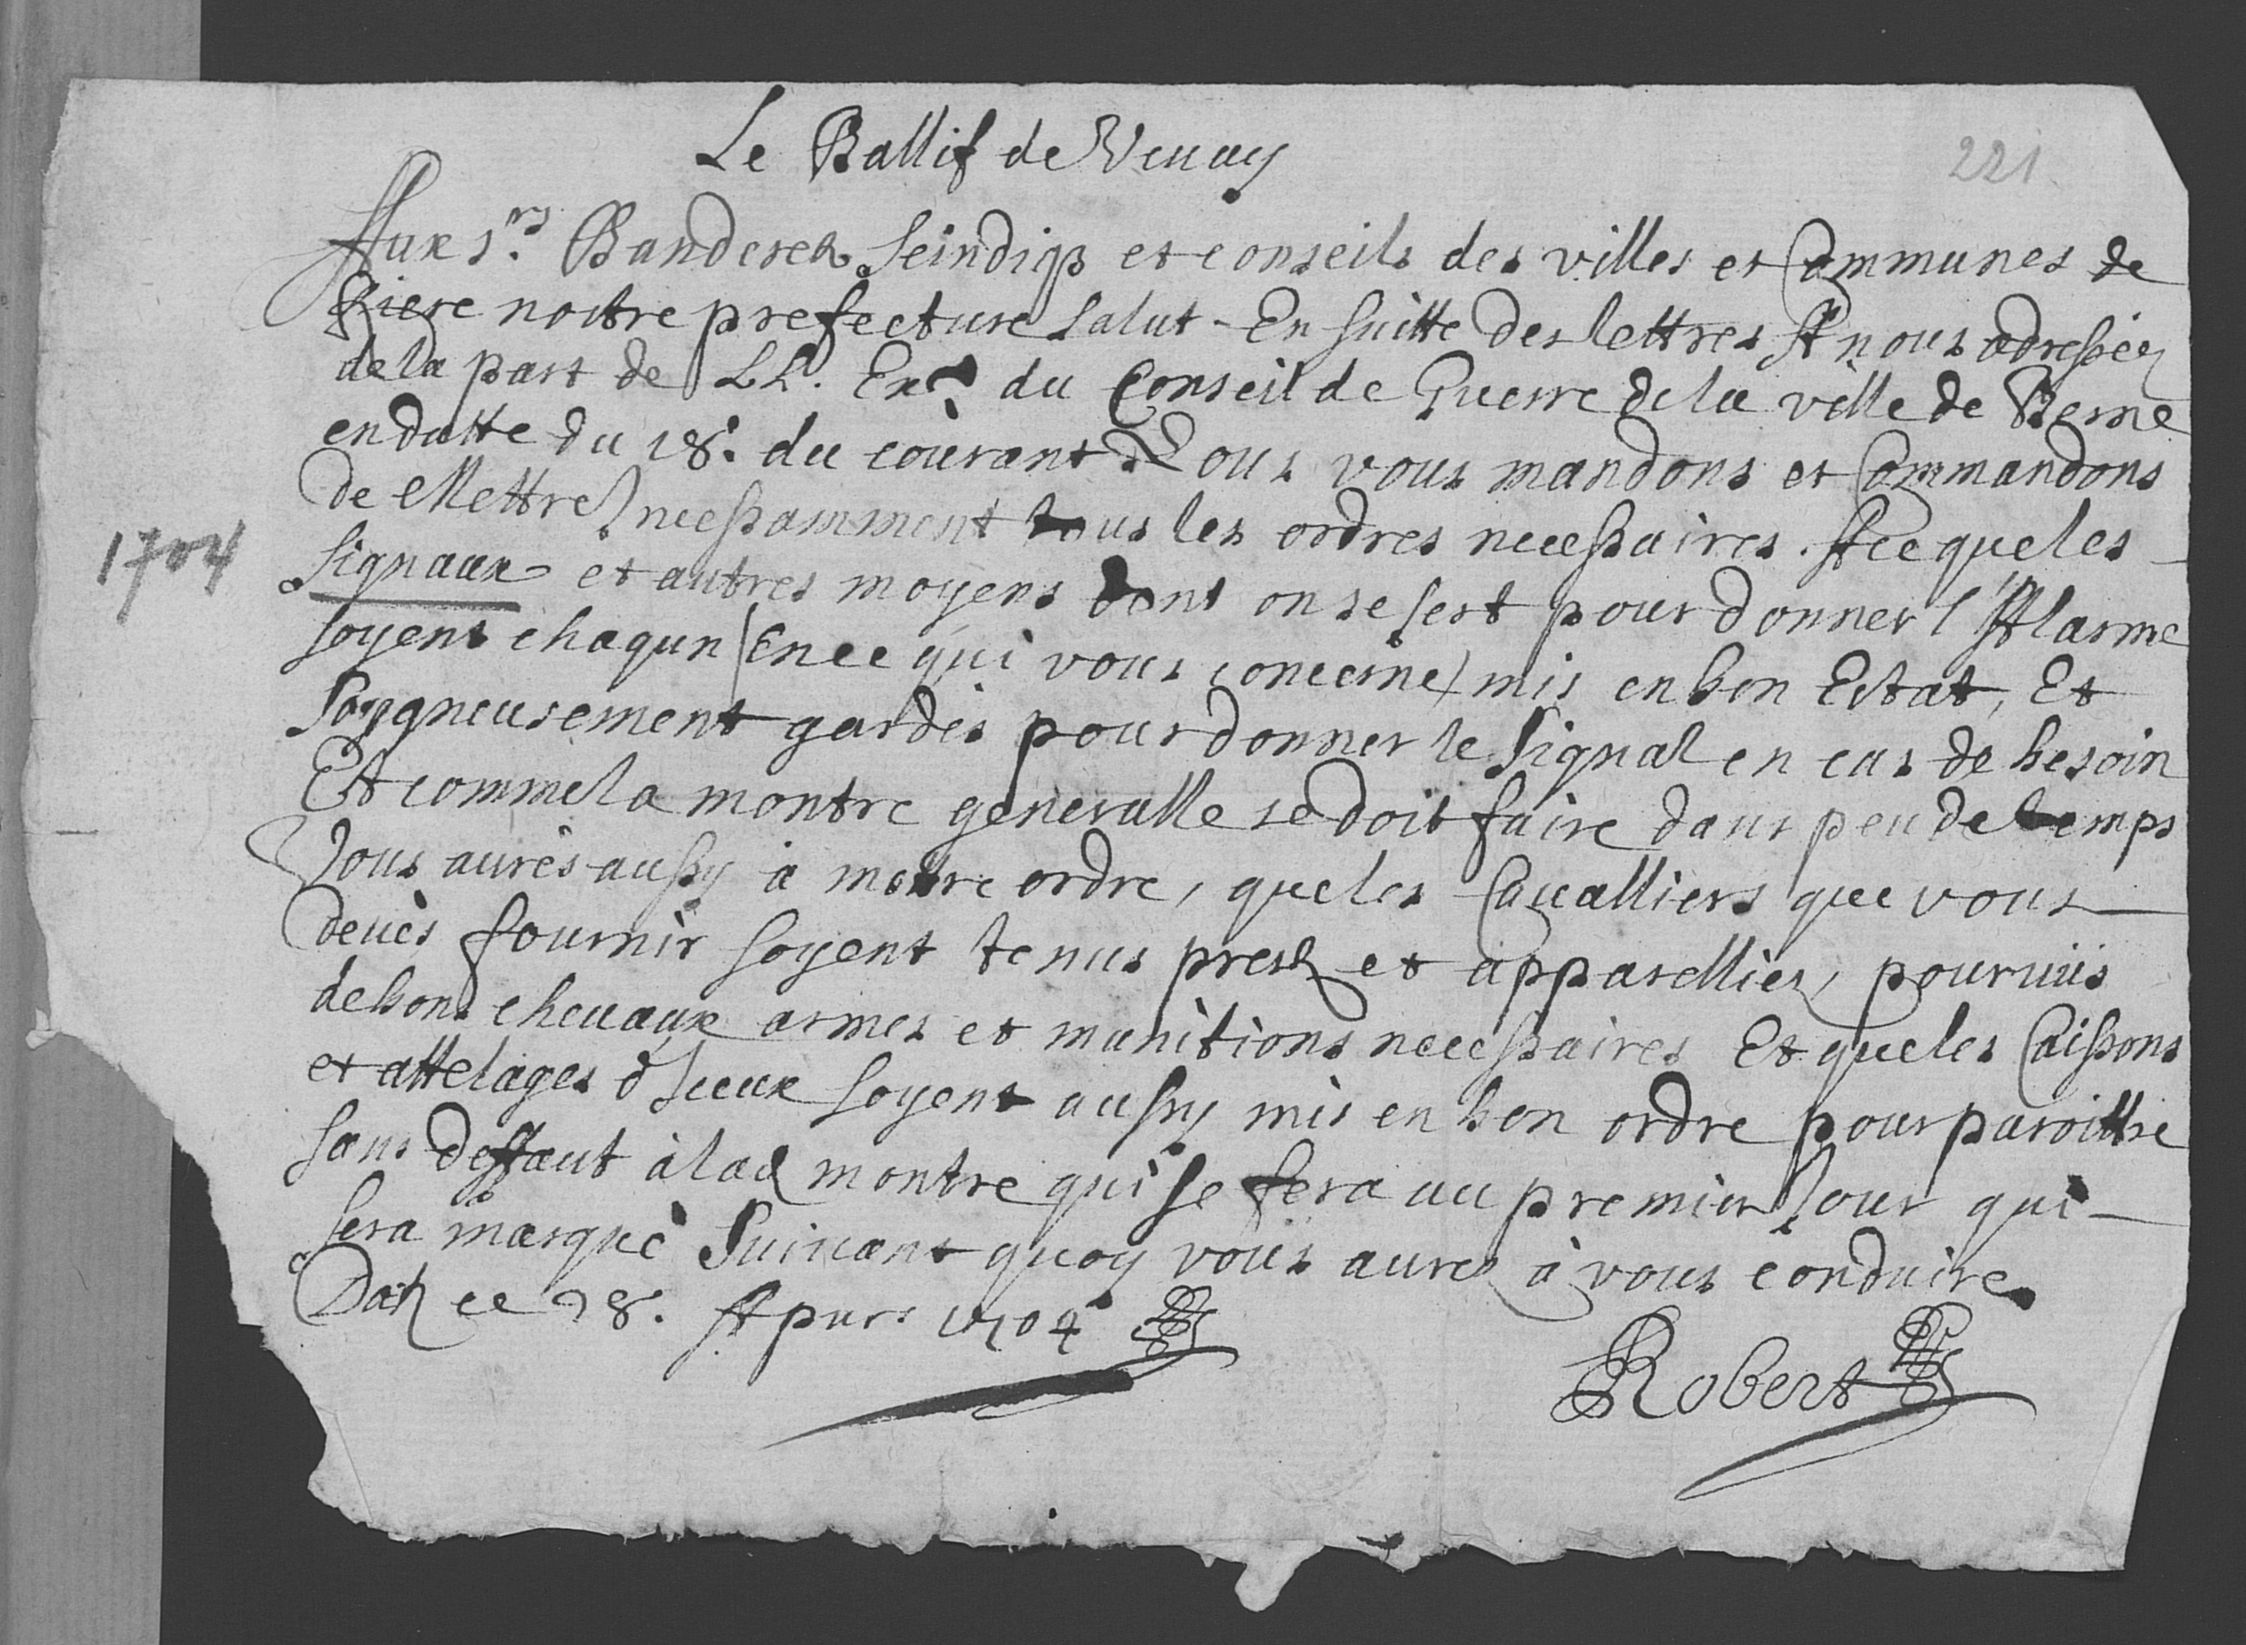 Le Ballif de Vevay
221
Aux srs. Banderetz Seindiqs et conseils des villes et Communes de
Riere nostre prefecture salut. En suitte des lettres A nous adressées
de la part de LL. Exces. du Conseil de Guerre de la ville de Berne
en datte du 18e. du courant Nous vous mandons et Commandons
de Mettre Incessamment tous les ordres necessaires A ce que les
1704
Signaux et autres moyens dont on se sert pour donner l'Alarme
soyent chaqun (En ce qui vous concerne) mis en bon Estat, Et
Soygneusement gardés pour donner le Signal en cas de besoin
Et comme la montre generalle se doit faire dans peu de temps
Vous aurés aussy à mettre ordre, que les Cavalliers que vous
devés fournir soyent tenus prestz et apparelliez, pourvüs
de bons chevaux armes et munitions necessaires Et que les Caissons
et attelages d'Iceux soyent aussy mis en bon ordre pour paroittre
sans deffaut à lad montre qui se fera au premier Jour qui
sera marqué Suivant quoy vous aurez à vous conduire
Datz ce 28. Apvrs 1704
Robert